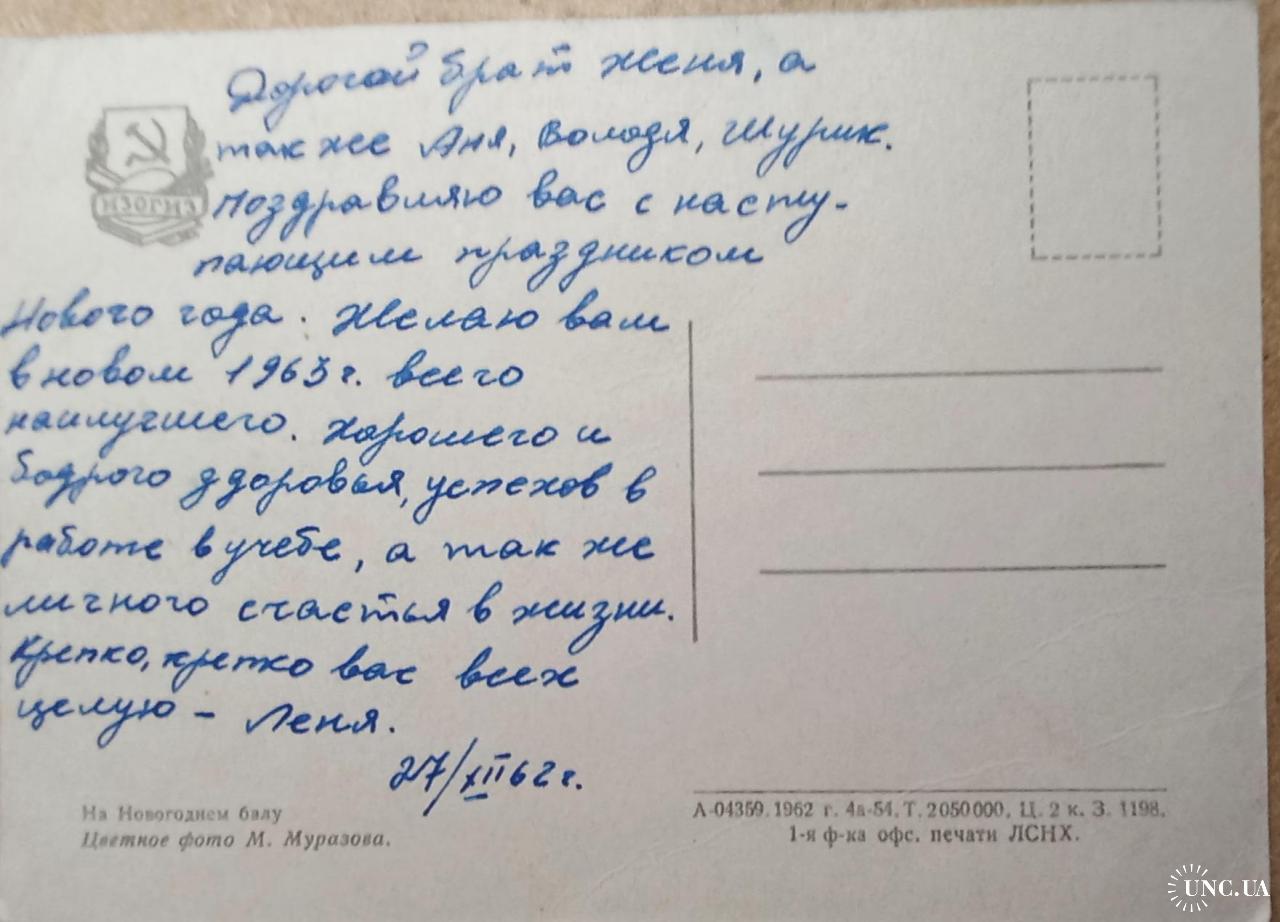 Дорогой брат Женя, а
так же Аня, Володя, Шурик.
Поздравляю вас с насту-
пающим праздником
Нового года. Желаю вам
в новом 1963 г. всего
наилучшего. Хорошего и
бодрого здоровья, успехов в
работе в учебе, а так же
личного счастья в жизни.
Крепко, крепко вас всех
целую – Леня.
27/XII 62 г.
ИЗОГИЗ
На Новогоднем балу
Цветное фото М. Муразова.
А-04359. 1962 г. 4а-54. Т. 2050000. Ц. 2 к. З. 1198.
1-я ф-ка офс. печати ЛСНХ.
UNC.UA